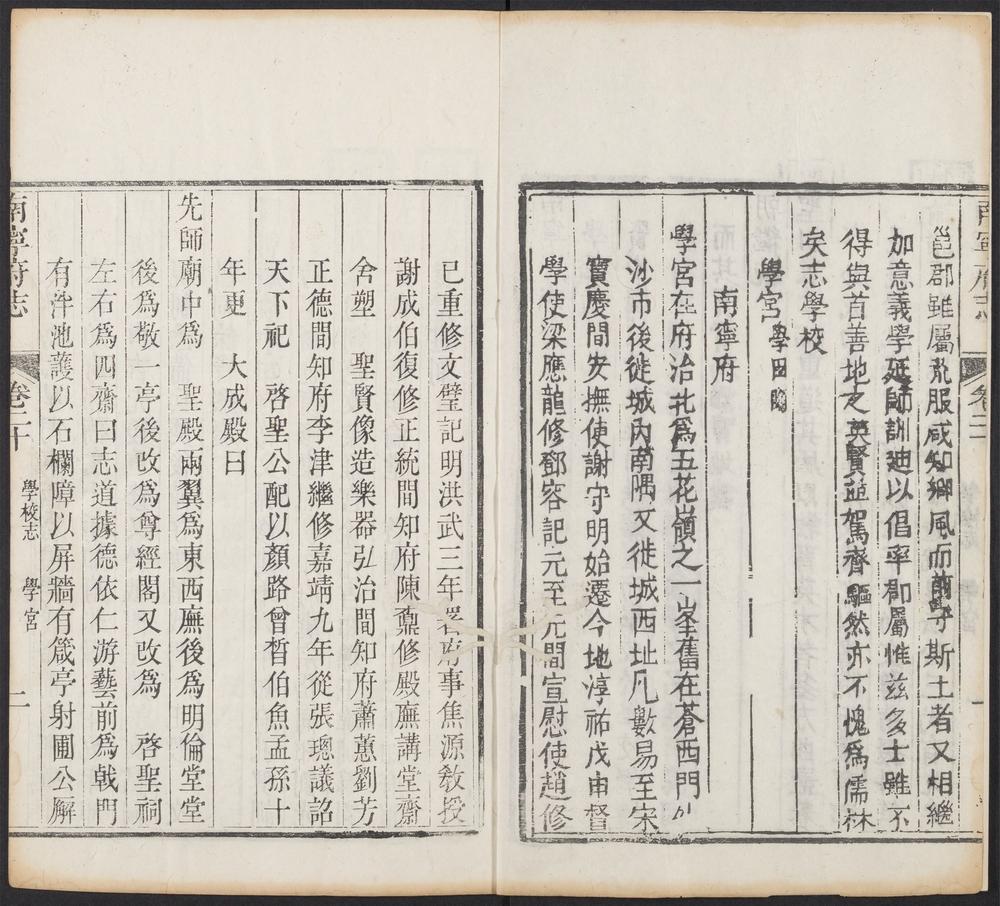 邕郡雖屬荒服咸知鄉風而前守斯土者又相繼
加意義學延師訓廸以倡率郡屬惟兹多士雖不
得與首善地之英賢並駕齊驅然亦不愧爲儒林
矣志學校
學宮 學田
南寧府
學宮在府治北爲五花嶺之一峯舊在蒼西門外
沙市後徙城內南隅又徙城西址凡數易至宋
寶慶間安撫使謝守明始遷今地淳祐戊申督
學使梁應龍修鄧容記元至元間宣慰使趙修
已重修文壁記明洪武三年署府事焦源敎授
謝成伯復修正統間知府陳鼐修殿廡講堂齋
舍塑 聖賢像造樂器弘治間知府蕭蕙劉芳
正德間知府李津繼修嘉靖九年從張璁議詔
天下祀 啓聖公配以顏路曾晳伯魚孟孫十
年更 大成殿曰
先師廟中爲 聖殿兩翼爲東西廡後爲明倫堂堂
後爲敬一亭後改爲尊經閣又改爲 啓聖祠
左右爲四齋曰志道據德依仁游藝前爲戟門
有泮池護以石欄障以屏牆有箴亭射圃公廨
南寧府志 卷二十 學校志 學宮 二